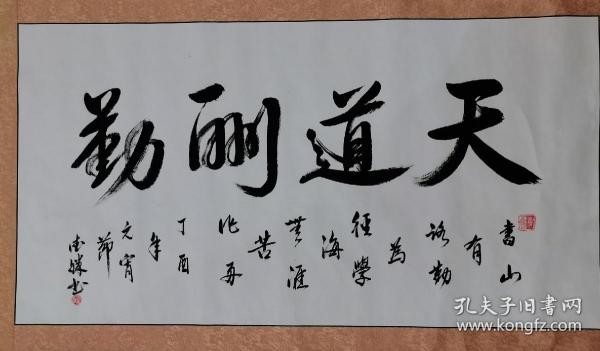 天道酬勤
書山
有
路勤
為
徑學
海
無涯
苦
作舟
丁酉
年
元宵
節
书
孔夫子旧书网
www.kongfz.com